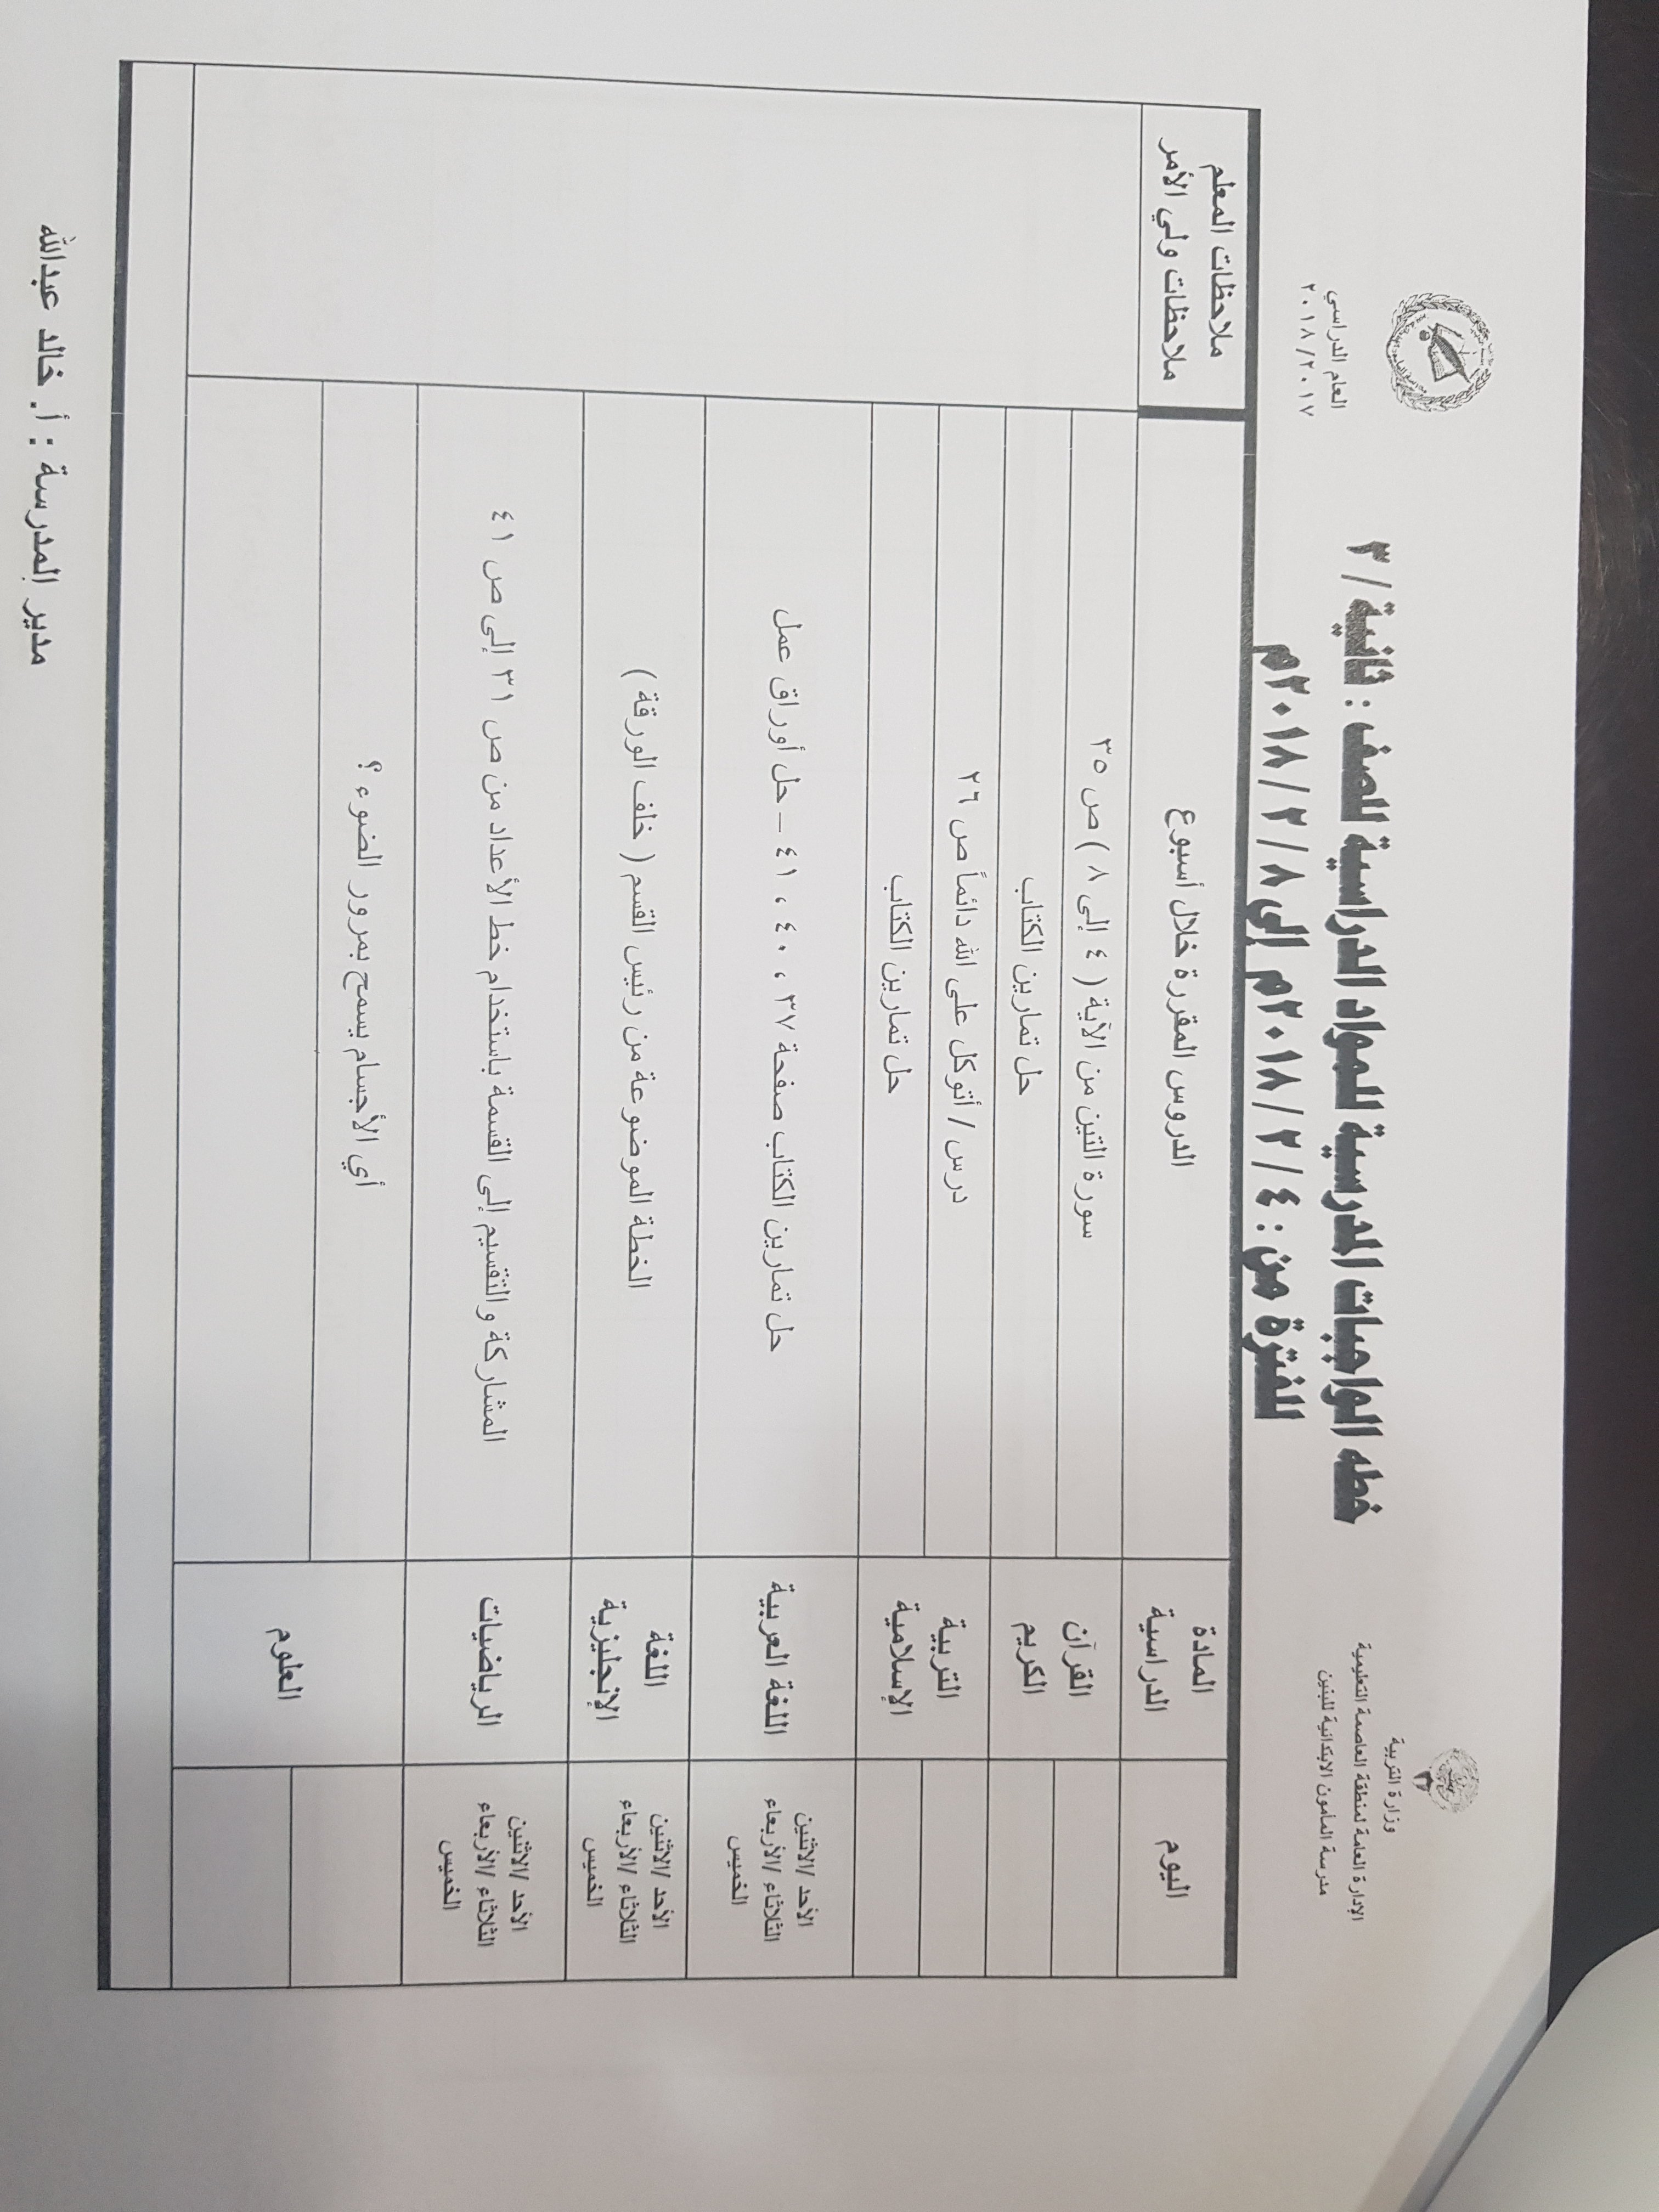 وزارة التربية
الإدارة العامة لمنطقة العاصمة التعليمية
مدرسة المأمون الابتدائية للبنين
العام الدراسي
٢٠١٨/٢٠١٧
خطه الواجبات المدرسية للمواد الدراسية للصف : ثانية / ٣
للفترة من : ٤ / ٢ / ٢٠١٨م إلى ٨ / ٢ / ٢٠١٨م
اليوم
المادة
الدراسية
الدروس المقررة خلال أسبوع
ملاحظات المعلم
ملاحظات ولي الأمر
القرآن
الكريم
سورة التين من الآية ( ٤ إلى ٨ ) ص ٣٥
حل تمارين الكتاب
التربية
الإسلامية
درس / أتوكل على الله دائماً ص ٢٦
حل تمارين الكتاب
الأحد /الاثنين
الثلاثاء /الأربعاء
الخميس
اللغة العربية
حل تمارين الكتاب صفحة ٣٧ ، ٤٠ ، ٤١ – حل أوراق عمل
الأحد /الاثنين
الثلاثاء /الأربعاء
الخميس
اللغة
الإنجليزية
الخطة الموضوعة من رئيس القسم ( خلف الورقة )
الأحد /الاثنين
الثلاثاء /الأربعاء
الخميس
الرياضيات
المشاركة والتقسيم إلى القسمة باستخدام خط الأعداد من ص ٣١ إلى ص ٤١
العلوم
أي الأجسام يسمح بمرور الضوء ؟
مدير المدرسة : أ. خالد عبدالله